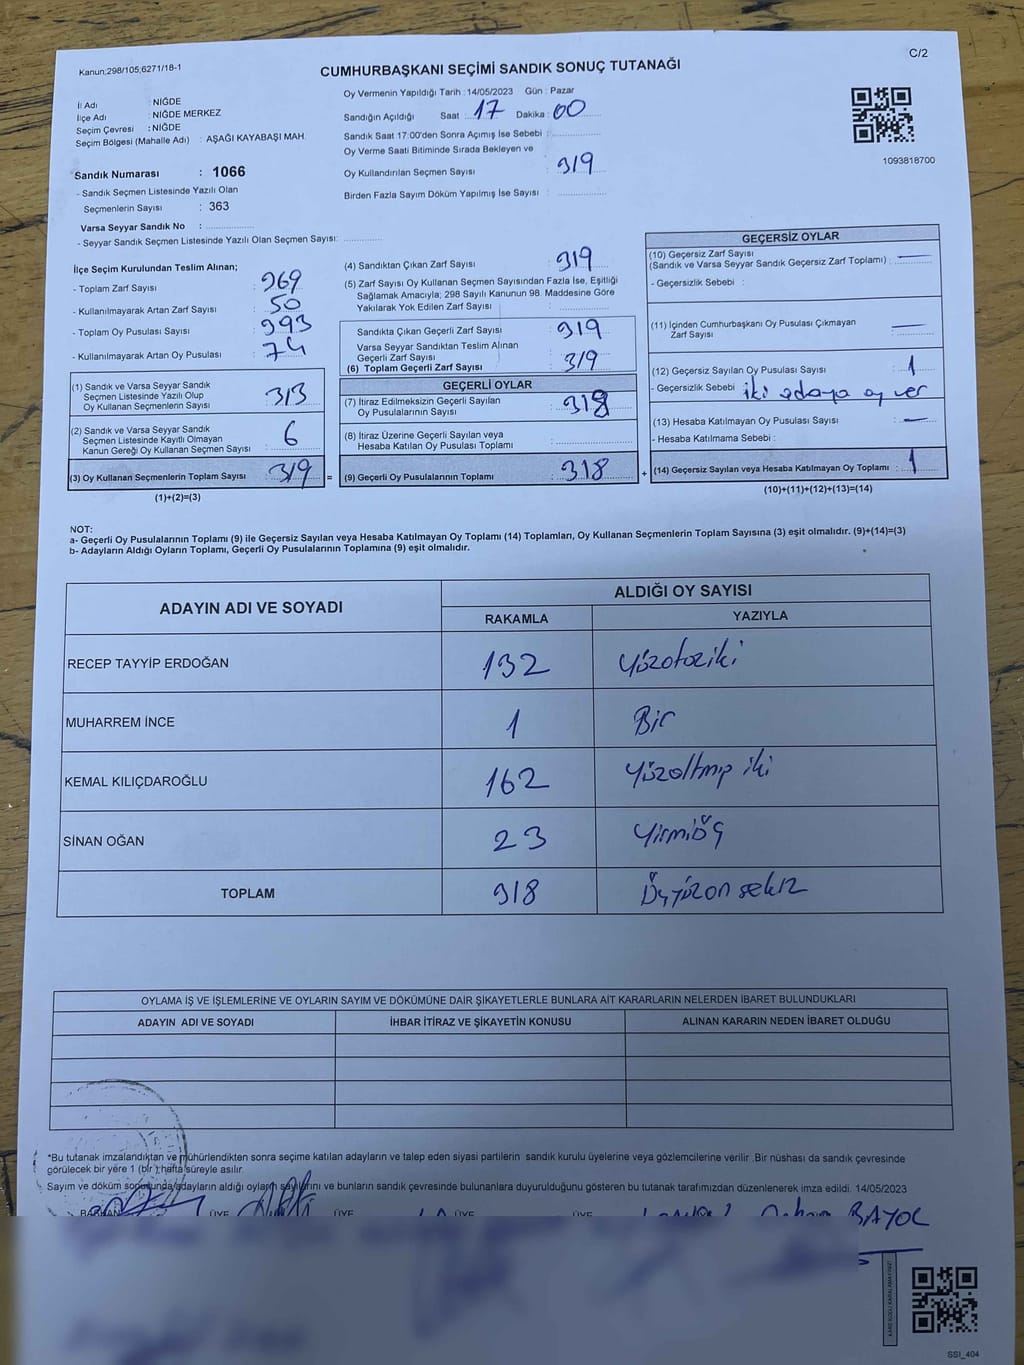 Kanun;298/105;6271/18-1
C/2
CUMHURBAŞKANI SEÇİMİ SANDIK SONUÇ TUTANAĞI
İl Adı : NİĞDE
İlçe Adı : NİĞDE MERKEZ
Seçim Çevresi : NİĞDE
Seçim Bölgesi (Mahalle Adı) : AŞAĞI KAYABAŞI MAH.
Sandık Numarası : 1066
- Sandık Seçmen Listesinde Yazılı Olan
Seçmenlerin Sayısı : 363
Varsa Seyyar Sandık No :
- Seyyar Sandık Seçmen Listesinde Yazılı Olan Seçmen Sayısı:
Oy Vermenin Yapıldığı Tarih : 14/05/2023 Gün : Pazar
Sandığın Açıldığı Saat 17 Dakika : 00
Sandık Saat 17:00'den Sonra Açımış İse Sebebi :
Oy Verme Saati Bitiminde Sırada Bekleyen ve
Oy Kullandırılan Seçmen Sayısı : 319
Birden Fazla Sayım Döküm Yapılmış İse Sayısı :
1093818700
İlçe Seçim Kurulundan Teslim Alınan;
- Toplam Zarf Sayısı : 369
- Kullanılmayarak Artan Zarf Sayısı : 50
- Toplam Oy Pusulası Sayısı : 393
- Kullanılmayarak Artan Oy Pusulası : 74
(1) Sandık ve Varsa Seyyar Sandık
Seçmen Listesinde Yazılı Olup
Oy Kullanan Seçmenlerin Sayısı : 313
(2) Sandık ve Varsa Seyyar Sandık
Seçmen Listesinde Kayıtlı Olmayan
Kanun Gereği Oy Kullanan Seçmen Sayısı : 6
(3) Oy Kullanan Seçmenlerin Toplam Sayısı : 319 =
(1)+(2)=(3)
(4) Sandıktan Çıkan Zarf Sayısı : 319
(5) Zarf Sayısı Oy Kullanan Seçmen Sayısından Fazla İse, Eşitliği
Sağlamak Amacıyla; 298 Sayılı Kanunun 98. Maddesine Göre
Yakılarak Yok Edilen Zarf Sayısı :
Sandıkta Çıkan Geçerli Zarf Sayısı : 319
Varsa Seyyar Sandıktan Teslim Alınan
Geçerli Zarf Sayısı
(6) Toplam Geçerli Zarf Sayısı : 319
GEÇERLİ OYLAR
(7) İtiraz Edilmeksizin Geçerli Sayılan
Oy Pusulalarının Sayısı : 318
(8) İtiraz Üzerine Geçerli Sayılan veya
Hesaba Katılan Oy Pusulası Toplamı :
(9) Geçerli Oy Pusulalarının Toplamı : 318 +
GEÇERSİZ OYLAR
(10) Geçersiz Zarf Sayısı
(Sandık ve Varsa Seyyar Sandık Geçersiz Zarf Toplamı) : —
- Geçersizlik Sebebi :
(11) İçinden Cumhurbaşkanı Oy Pusulası Çıkmayan
Zarf Sayısı : —
(12) Geçersiz Sayılan Oy Pusulası Sayısı : 1
- Geçersizlik Sebebi : iki adaya oy ver
(13) Hesaba Katılmayan Oy Pusulası Sayısı : —
- Hesaba Katılmama Sebebi :
(14) Geçersiz Sayılan veya Hesaba Katılmayan Oy Toplamı : 1
(10)+(11)+(12)+(13)=(14)
NOT:
a- Geçerli Oy Pusulalarının Toplamı (9) ile Geçersiz Sayılan veya Hesaba Katılmayan Oy Toplamı (14) Toplamları, Oy Kullanan Seçmenlerin Toplam Sayısına (3) eşit olmalıdır. (9)+(14)=(3)
b- Adayların Aldığı Oyların Toplamı, Geçerli Oy Pusulalarının Toplamına (9) eşit olmalıdır.
ADAYIN ADI VE SOYADI
ALDIĞI OY SAYISI
RAKAMLA YAZIYLA
RECEP TAYYİP ERDOĞAN 132 Yüzotoziki
MUHARREM İNCE 1 Bir
KEMAL KILIÇDAROĞLU 162 Yüzaltmış iki
SİNAN OĞAN 23 Yirmiüç
TOPLAM 318 Üçyüzon sekiz
OYLAMA İŞ VE İŞLEMLERİNE VE OYLARIN SAYIM VE DÖKÜMÜNE DAİR ŞİKAYETLERLE BUNLARA AİT KARARLARIN NELERDEN İBARET BULUNDUKLARI
ADAYIN ADI VE SOYADI İHBAR İTİRAZ VE ŞİKAYETİN KONUSU ALINAN KARARIN NEDEN İBARET OLDUĞU
*Bu tutanak imzalandıktan ve mühürlendikten sonra seçime katılan adayların ve talep eden siyasi partilerin sandık kurulu üyelerine veya gözlemcilerine verilir .Bir nüshası da sandık çevresinde
görülecek bir yere 1 (bir ) hafta süreyle asılır.
Sayım ve döküm sonunda adayların aldığı oyların sayılarını ve bunların sandık çevresinde bulunanlara duyurulduğunu gösteren bu tutanak tarafımızdan düzenlenerek imza edildi. 14/05/2023
BAŞKAN ÜYE ÜYE ÜYE ÜYE
BAYOL
SSI_404